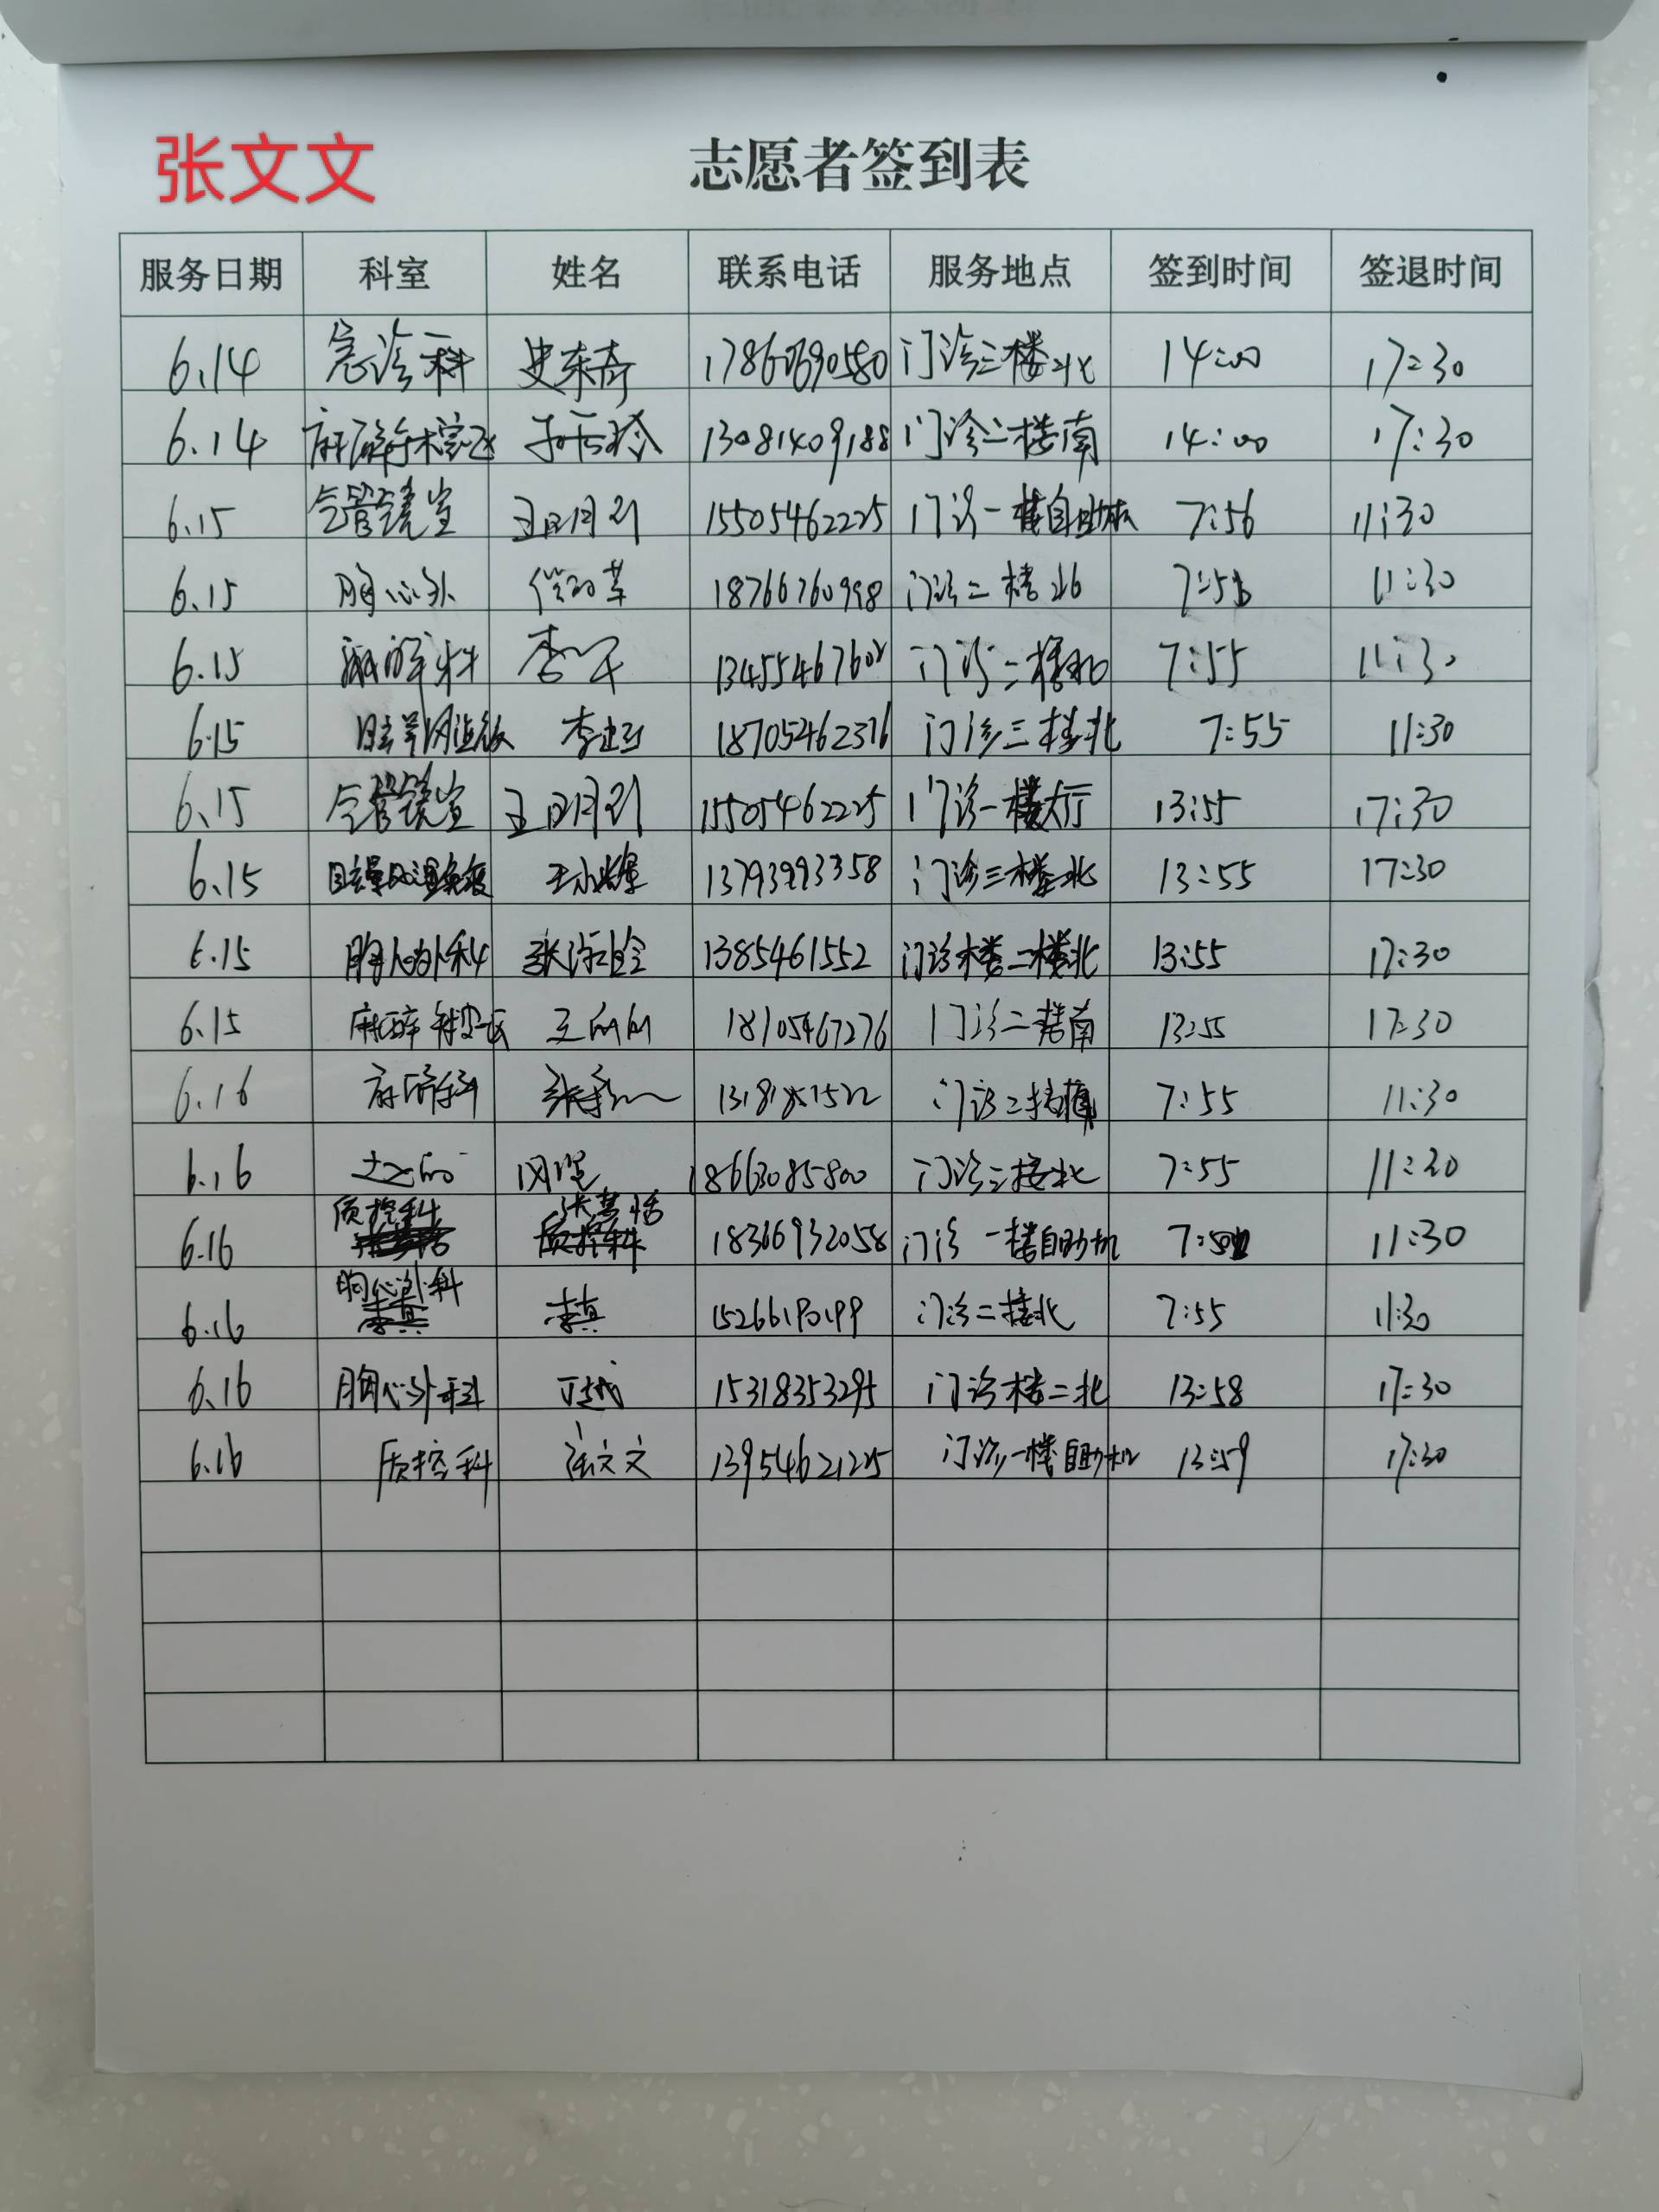 张文文
志愿者签到表
服务日期 科室 姓名 联系电话 服务地点 签到时间 签退时间
6.14 急诊科 史东奇 17860690580 门诊三楼北 14:00 17:30
6.14 13081409188 门诊二楼南 14:00 17:30
6.15 气管镜室 15505462225 门诊一楼自助机 7:56 11:30
6.15 胸心外 18766760998 门诊二楼北 11:30
6.15 麻醉科 李军 门诊二楼北 7:55 11:30
6.15 18705462376 门诊三楼北 7:55 11:30
6.15 气管镜室 15505462225 门诊一楼大厅 13:55 17:30
6.15 王永辉 13793993358 门诊三楼北 13:55 17:30
6.15 胸心外科 1385461552 门诊楼二楼北 13:55 17:30
6.15 18105467276 门诊二楼南 13:55 17:30
6.16 麻醉科 7:55 11:30
6.16 18663085800 门诊三楼北 7:55 11:30
6.16 质控科 张慧恬 18366932058 门诊一楼自助机 11:30
6.16 胸心外科 李真 15266190199 门诊二楼北 7:55 11:30
6.16 胸心外科 丁越 15318353295 门诊楼二北 13:58 17:30
6.16 质控科 张文文 13954621225 门诊一楼自助机 13:59 17:30